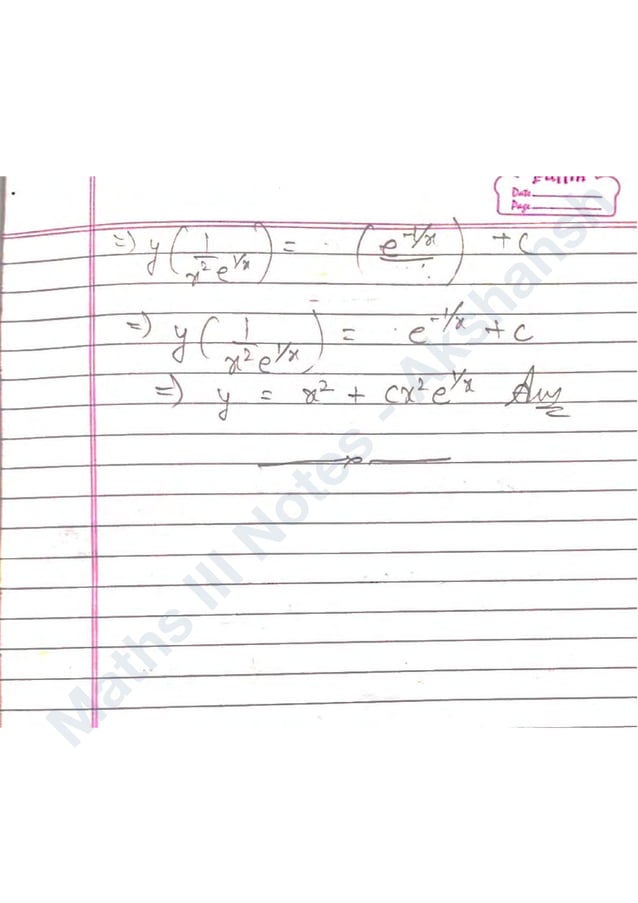 Date
Page
=) y(1/x²e^1/x) = (e^-1/x) + C
=) y(1/x²e^1/x) = e^-1/x + C
=) y = x² + Cx²e^1/x Ans
Maths III Notes - Akshansh